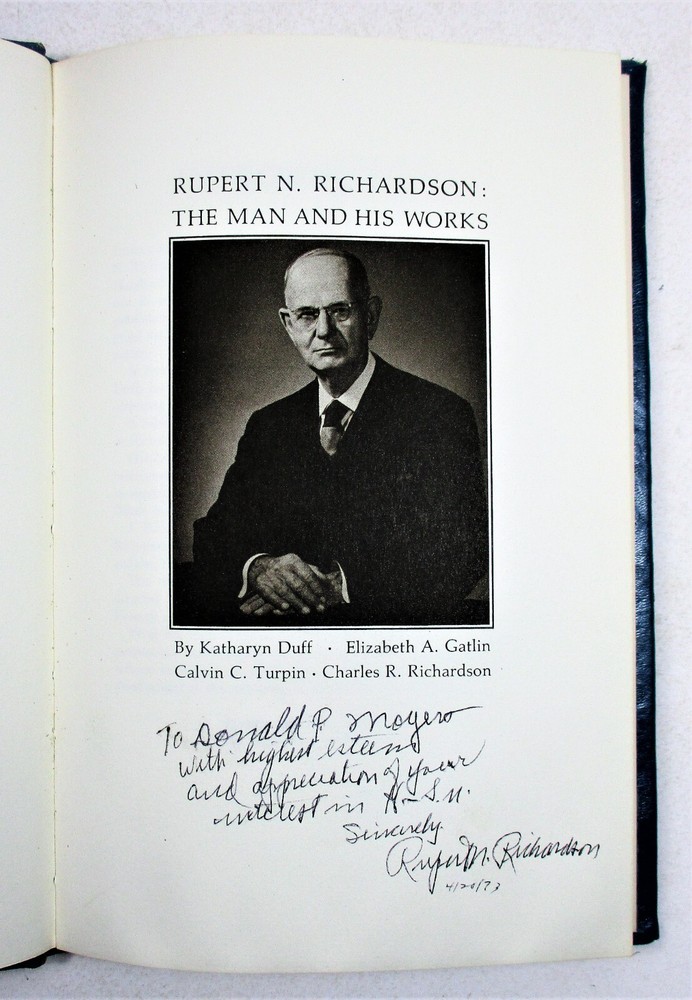 RUPERT N. RICHARDSON:
THE MAN AND HIS WORKS
By Katharyn Duff · Elizabeth A. Gatlin
Calvin C. Turpin · Charles R. Richardson
To Donald P. Moyers
with highest esteem
and appreciation of your
interest in H-S.U.
Sincerely.
Rupert N. Richardson